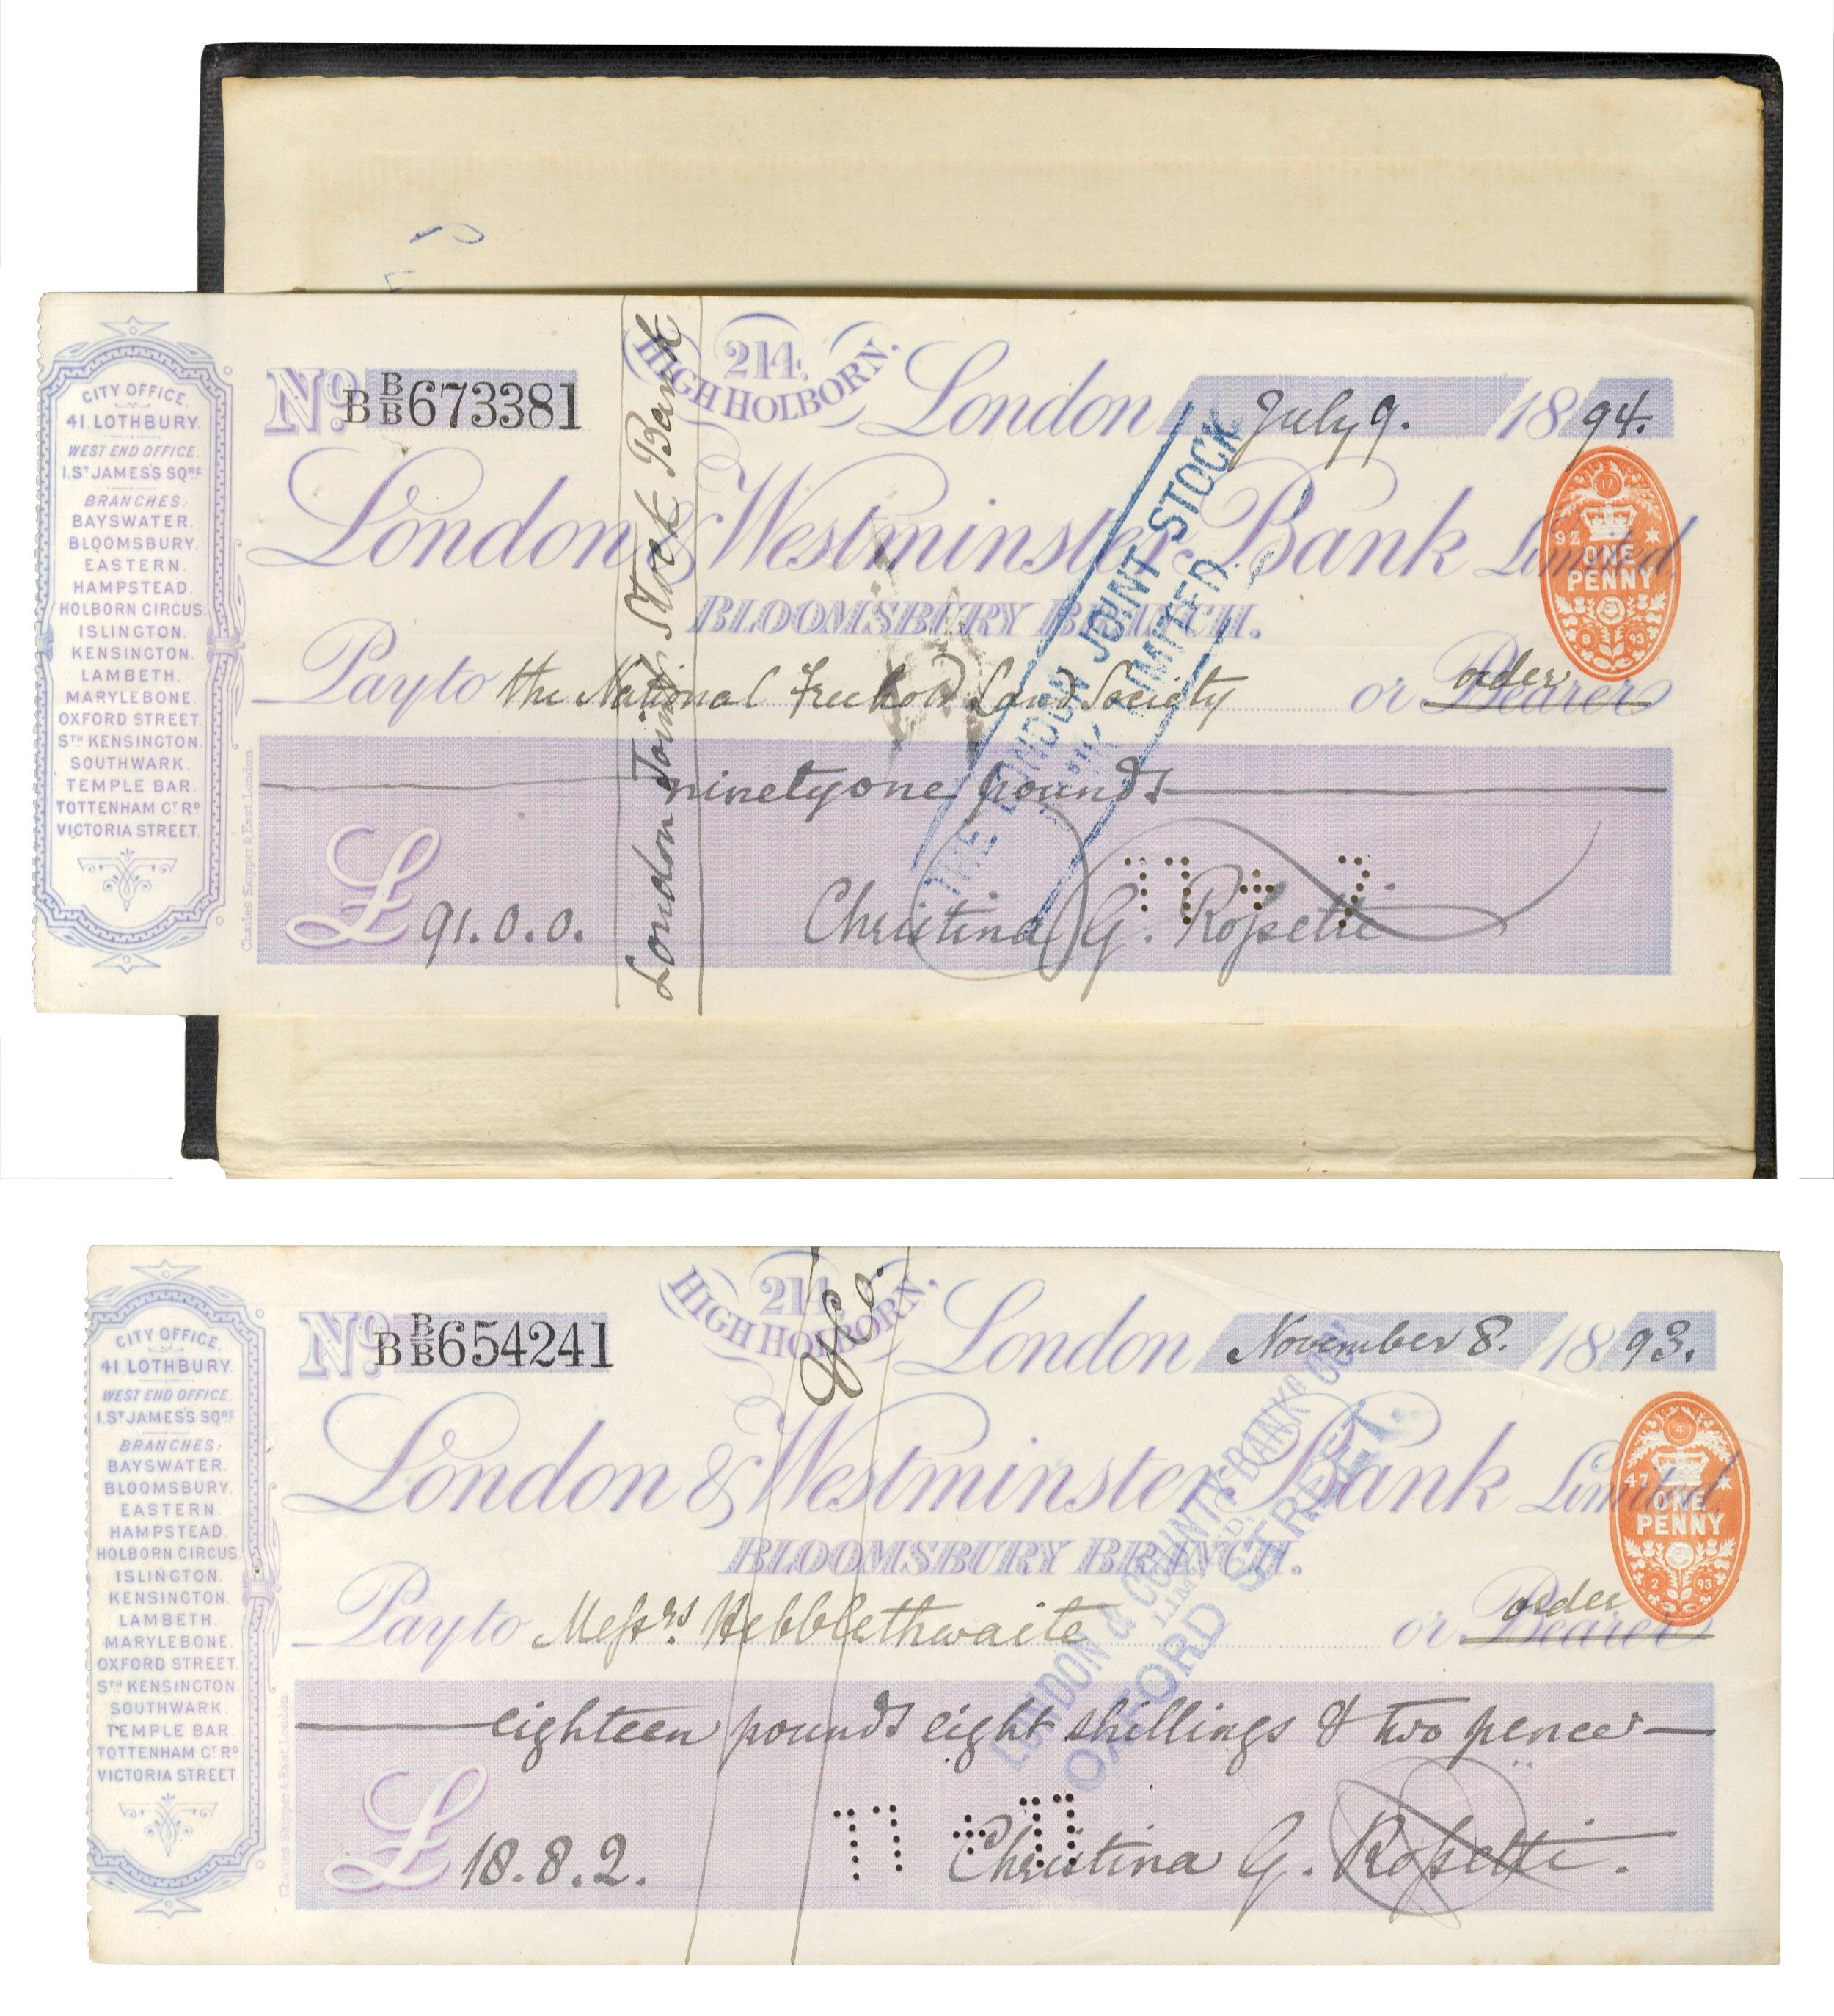 CITY OFFICE,
41, LOTHBURY.
WEST END OFFICE,
1, ST JAMES'S SQRE
BRANCHES:
BAYSWATER.
BLOOMSBURY.
EASTERN.
HAMPSTEAD.
HOLBORN CIRCUS.
ISLINGTON.
KENSINGTON.
LAMBETH.
MARYLEBONE.
OXFORD STREET.
STH KENSINGTON.
SOUTHWARK.
TEMPLE BAR.
TOTTENHAM CT RD
VICTORIA STREET.
Charles Skipper & East London
No. B B/B 673381
214, HIGH HOLBORN.
London July 9. 1894.
London & Westminster Bank Limited,
BLOOMSBURY BRANCH.
Pay to the National Freehold Land Society or Bearer order
ninetyone pounds
£ 91.0.0.
Christina G. Rossetti
London Joint Stock Bank
THE LONDON JOINT STOCK
BANK, LIMITED.
17
92
ONE
PENNY
8 93
CITY OFFICE,
41, LOTHBURY
WEST END OFFICE,
1, ST JAMES'S SQRE
BRANCHES:
BAYSWATER.
BLOOMSBURY.
EASTERN.
HAMPSTEAD.
HOLBORN CIRCUS.
ISLINGTON.
KENSINGTON.
LAMBETH.
MARYLEBONE.
OXFORD STREET.
STH KENSINGTON.
SOUTHWARK.
TEMPLE BAR.
TOTTENHAM CT RD
VICTORIA STREET.
Charles Skipper & East London
No. B B/B 654241
214, HIGH HOLBORN.
London November 8. 1893.
London & Westminster Bank Limited,
BLOOMSBURY BRANCH.
Pay to Messrs. Hebblethwaite or Bearer order
eighteen pounds eight shillings & two pence
£ 18.8.2.
Christina G. Rossetti.
& Co.
LONDON & COUNTY BANKG CO.
LIMITED,
OXFORD STREET.
4
47
ONE
PENNY
2 93